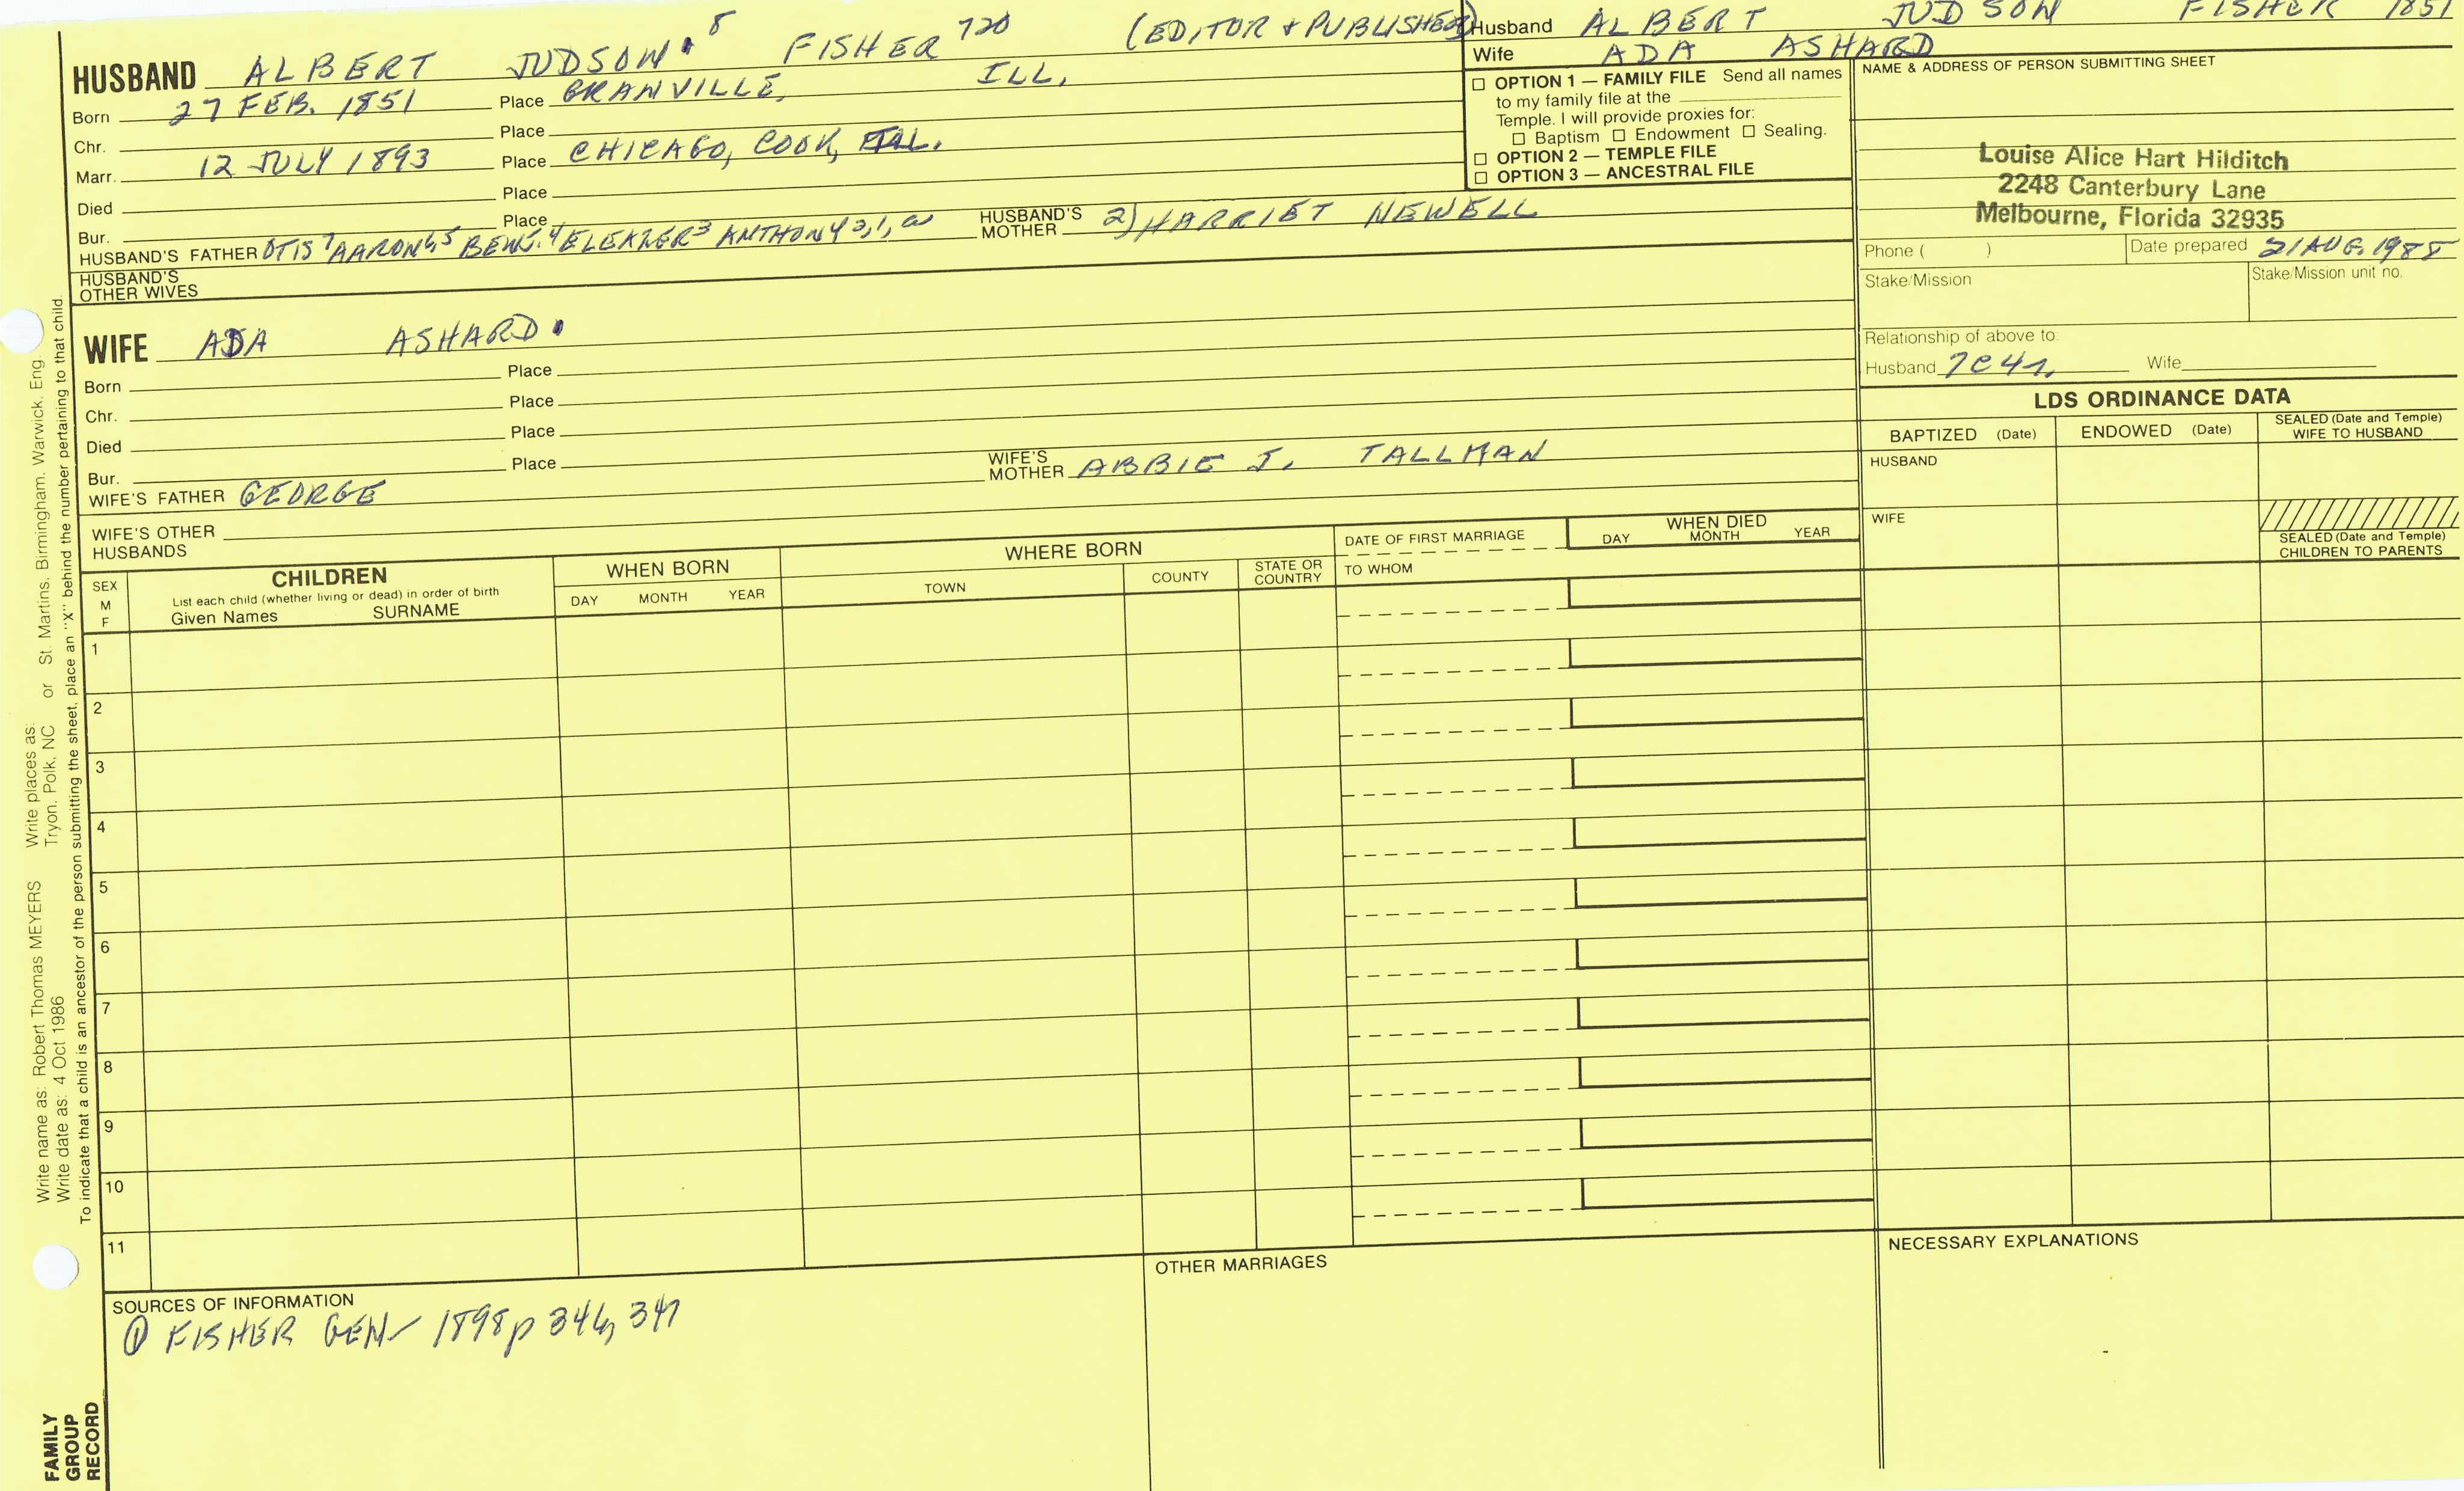 HUSBAND ALBERT JUDSON 8 FISHER 720 (EDITOR + PUBLISHER)
Born 27 FEB. 1851 Place GRANVILLE, ILL.
Chr. Place
Marr. 12 JULY 1893 Place CHICAGO, COOK, ILL.
Died Place
Bur. Place
HUSBAND'S FATHER OTIS 7 AARON 6,5 BENJ. 4 ELEAZER 3 ANTHONY 2,1,a HUSBAND'S MOTHER 2) HARRIET NEWELL
HUSBAND'S OTHER WIVES
WIFE ADA ASHARD
Born Place
Chr. Place
Died Place
Bur. Place
WIFE'S FATHER GEORGE WIFE'S MOTHER ABBIE J. TALLMAN
WIFE'S OTHER HUSBANDS
Husband ALBERT JUDSON FISHER 1851
Wife ADA ASHARD
☐ OPTION 1 — FAMILY FILE Send all names
to my family file at the
Temple. I will provide proxies for:
☐ Baptism ☐ Endowment ☐ Sealing.
☐ OPTION 2 — TEMPLE FILE
☐ OPTION 3 — ANCESTRAL FILE
NAME & ADDRESS OF PERSON SUBMITTING SHEET
Louise Alice Hart Hilditch
2248 Canterbury Lane
Melbourne, Florida 32935
Phone ( ) Date prepared 21 AUG. 1988
Stake/Mission Stake/Mission unit no.
Relationship of above to:
Husband 7C4r. Wife
LDS ORDINANCE DATA
BAPTIZED (Date) ENDOWED (Date) SEALED (Date and Temple) WIFE TO HUSBAND
HUSBAND
WIFE
SEALED (Date and Temple) CHILDREN TO PARENTS
SEX M F
CHILDREN
List each child (whether living or dead) in order of birth
Given Names SURNAME
WHEN BORN
DAY MONTH YEAR
WHERE BORN
TOWN COUNTY STATE OR COUNTRY
DATE OF FIRST MARRIAGE
TO WHOM
WHEN DIED
DAY MONTH YEAR
1
2
3
4
5
6
7
8
9
10
11
SOURCES OF INFORMATION
① FISHER GEN 1898 p 346, 347
OTHER MARRIAGES
NECESSARY EXPLANATIONS
Write name as: Robert Thomas MEYERS Write places as: Tryon, Polk, NC or St. Martins, Birmingham, Warwick, Eng.
Write date as: 4 Oct 1986
To indicate that a child is an ancestor of the person submitting the sheet, place an "X" behind the number pertaining to that child.
FAMILY
GROUP
RECORD